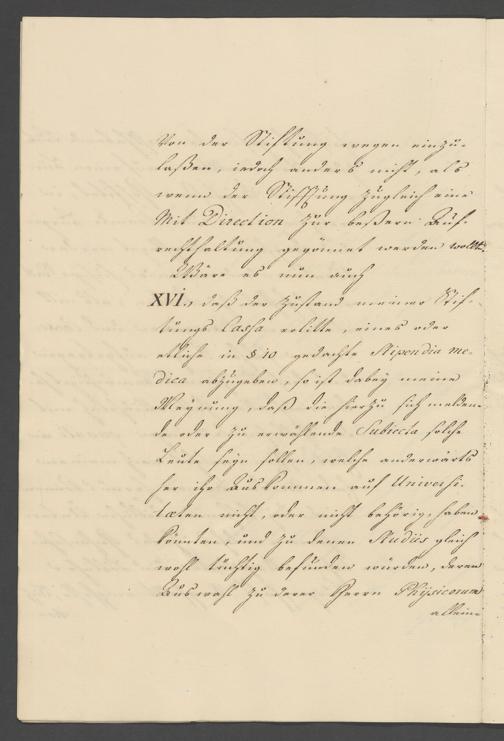 Von der Stiftung wegen einzu-
laßen, jedoch anders nicht, als
wenn der Stiftung zugleich eine
Mit Direction zur beßern Auf-
rechthaltung gegönnet werden wollte.
Wäre es nun auch
XVI., daß der Zustand meiner Stif-
tungs Cassa erlitte, eines oder
etliche in § 10 gedachte Stipendia me-
dica abzugeben, so ist dabey meine
Meynung, daß die hierzu sich melden-
de oder zu erwählende Subiecta solche
Leute seyn sollen, welche anderwärts
her ihr Auskommen auf Universi-
taeten nicht, oder nicht behörig, haben
könnten, und zu denen Studiis gleich
wohl tüchtig befunden würden, deren
Auswahl zu derer Herrn Physicorum
alleini-